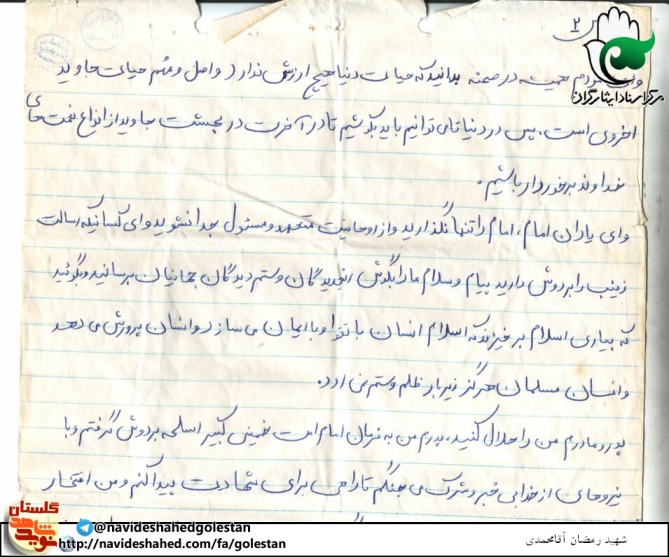 ۲
مرکز اسناد ایثارگران
وای مردم همیشه در صحنه بدانید که حیات دنیا هیچ ارزش ندارد واصل و مهم حیات جاوید
اخروی است. پس در دنیا تا می توانیم باید بکوشیم تا در آخرت در بهشت جاوید از انواع نعمت های
خداوند برخوردار باشیم.
وای یاران امام، امام را تنها نگذارید و از روحانیت متعهد و مسئول جدا نشوید وای کسانیکه رسالت
زینب را بر دوش دارید پیام و سلام ما را بگوش رنجدیدگان وستم دیدگان جهانیان برسانید وبگوئید
که بیاری اسلام برخیزند که اسلام انسان با تقوا و با ایمان می سازد و انسان پرورش می دهد
وانسان مسلمان هرگز زیر بار ظلم وستم نمی رود.
پدر و مادرم من را حلال کنید، پدرم من به فرمان امام امت خمینی کبیر اسلحه بر دوش گرفتم و با
نیروهای از خدا بی خبر و شرک می جنگم تا راهی برای شهادت پیدا کنم و من افتخار
گلستان
نوید شاهد
@navideshahedgolestan
http://navideshahed.com/fa/golestan
شهید رمضان آقامحمدی